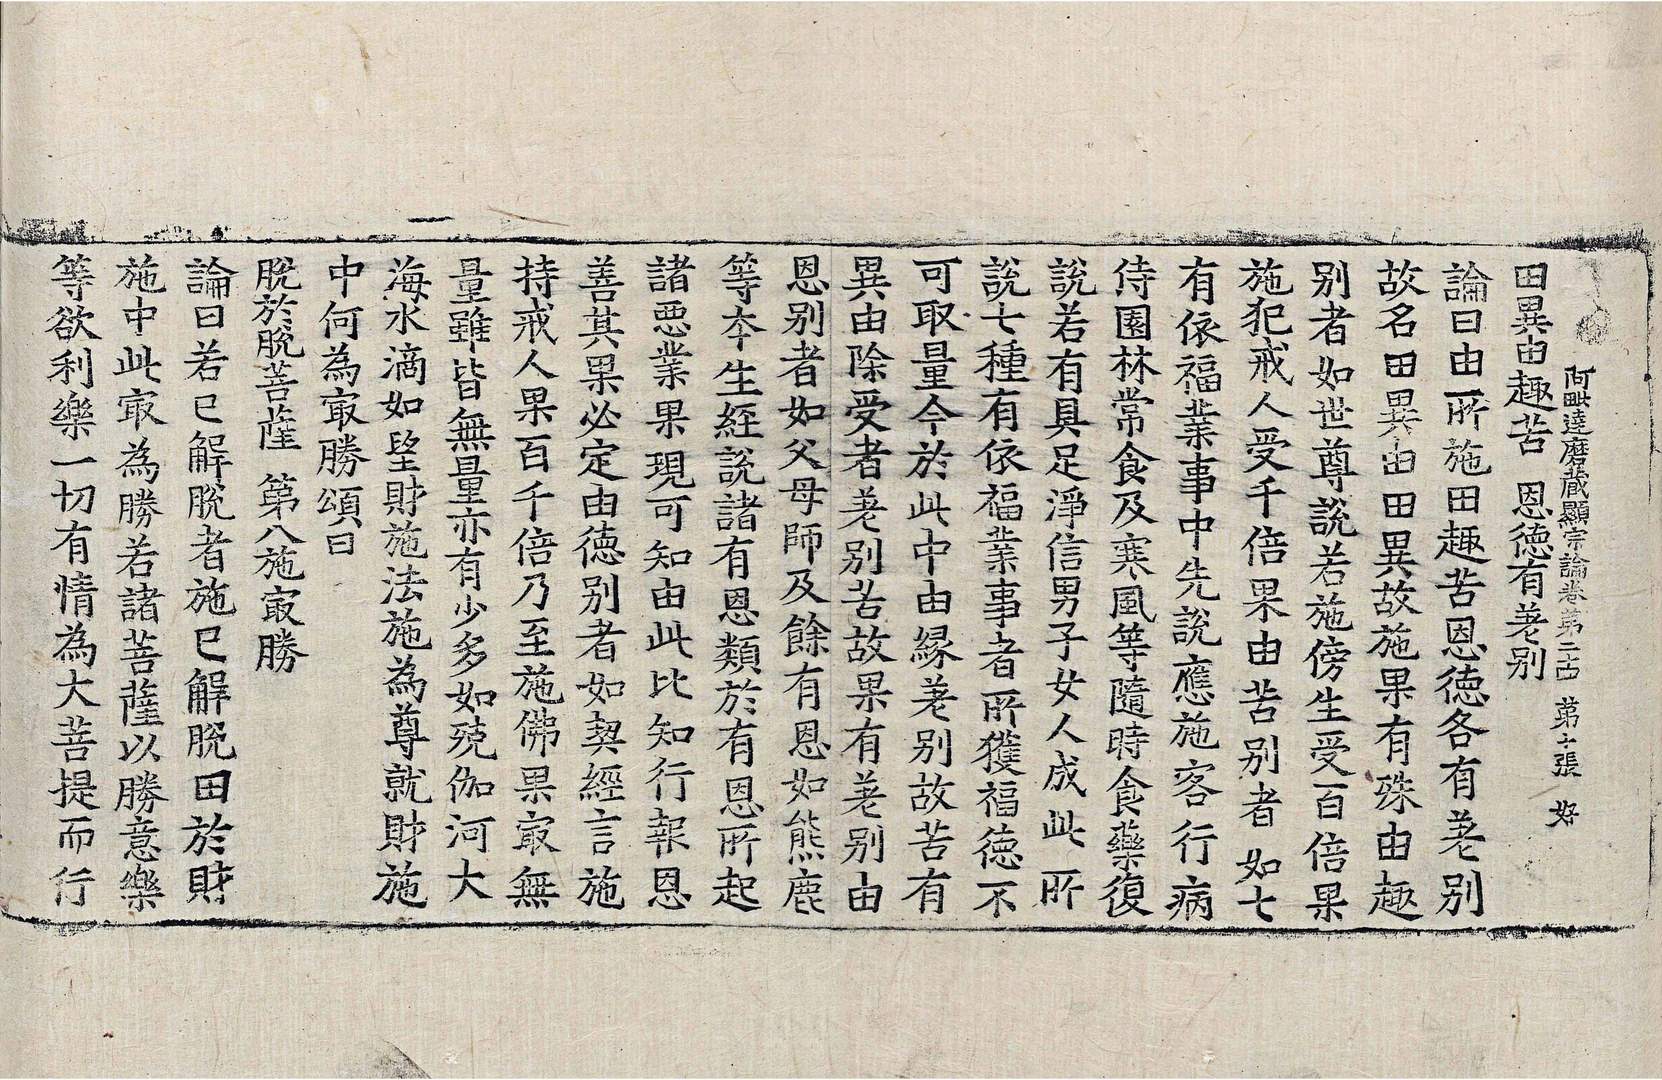 阿毗達磨藏顯宗論卷第二十四 第十張 好
田異由趣苦 恩德有差别
論曰由所施田趣苦恩德各有差别
故名田異由田異故施果有殊由趣
别者如世尊說若施傍生受百倍果
施犯戒人受千倍果由苦别者如七
有依福業事中先說應施客行病
侍園林常食及寒風等隨時食藥復
說若有具足淨信男子女人成此所
說七種有依福業事者所獲福德不
可取量今於此中由緣差别故苦有
異由除受者差别苦故果有差别由
恩别者如父母師及餘有恩如熊鹿
等夲生經說諸有恩類於有恩所起
諸惡業果現可知由此比知行報恩
善其果必定由德别者如契經言施
持戒人果百千倍乃至施佛果㝡無
量雖皆無量亦有少多如殑伽河大
海水滴如望財施法施為尊就財施
中何為㝡勝頌曰
脫於脫菩薩 第八施㝡勝
論曰若已解脫者施已解脫田於財
施中此㝡為勝若諸菩薩以勝意樂
等欲利樂一切有情為大菩提而行